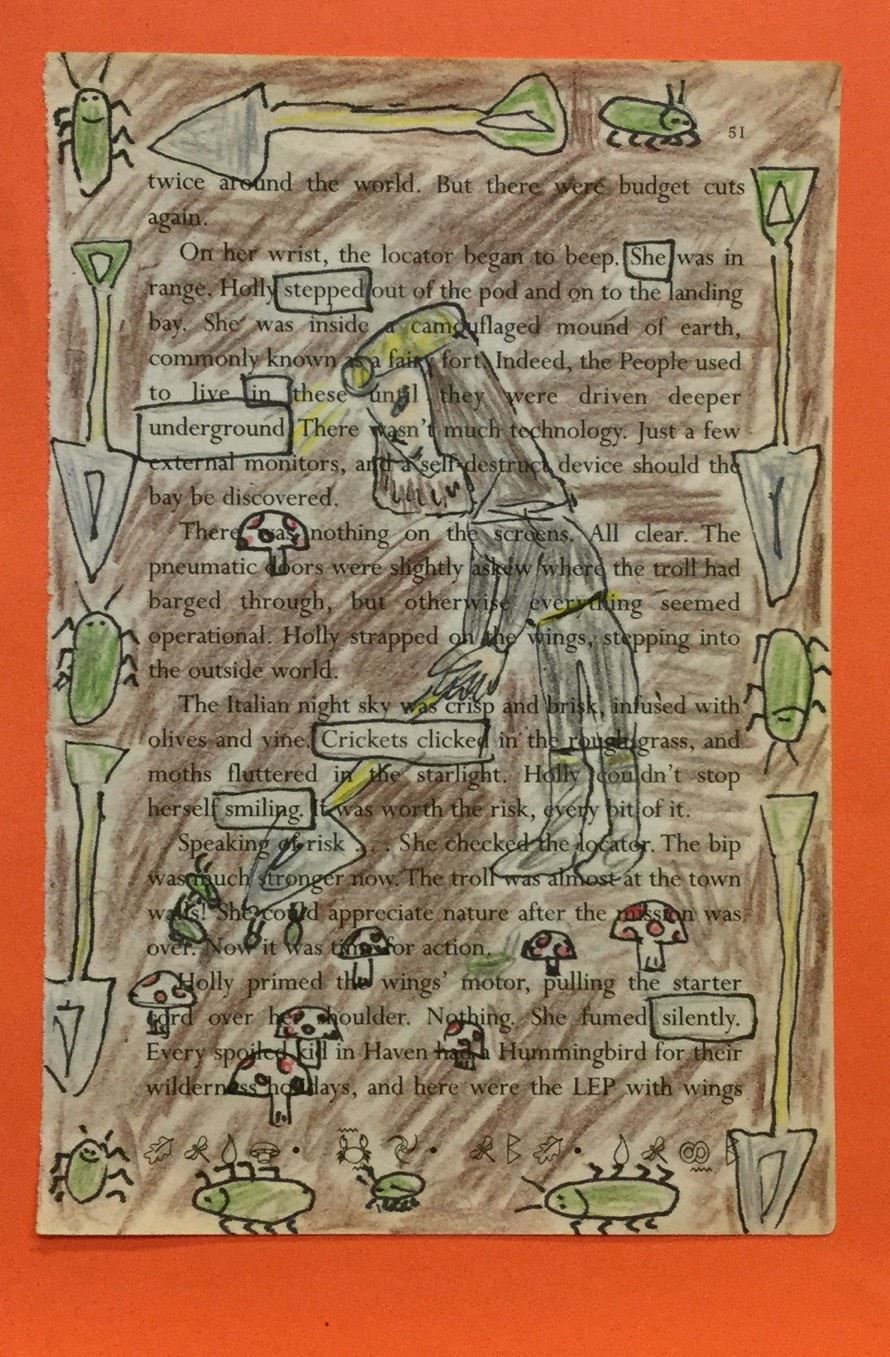 51
twice around the world. But there were budget cuts
again.
On her wrist, the locator began to beep. She was in
range. Holly stepped out of the pod and on to the landing
bay. She was inside a camouflaged mound of earth,
commonly known as a fairy fort. Indeed, the People used
to live in these until they were driven deeper
underground. There wasn't much technology. Just a few
external monitors, and a self-destruct device should the
bay be discovered.
There was nothing on the screens. All clear. The
pneumatic doors were slightly askew where the troll had
barged through, but otherwise everything seemed
operational. Holly strapped on the wings, stepping into
the outside world.
The Italian night sky was crisp and brisk, infused with
olives and vine. Crickets clicked in the rough grass, and
moths fluttered in the starlight. Holly couldn't stop
herself smiling. It was worth the risk, every bit of it.
Speaking of risk . . . She checked the locator. The bip
was much stronger now. The troll was almost at the town
walls! She could appreciate nature after the mission was
over. Now it was time for action.
Holly primed the wings' motor, pulling the starter
cord over her shoulder. Nothing. She fumed silently.
Every spoiled kid in Haven had a Hummingbird for their
wilderness holidays, and here were the LEP with wings